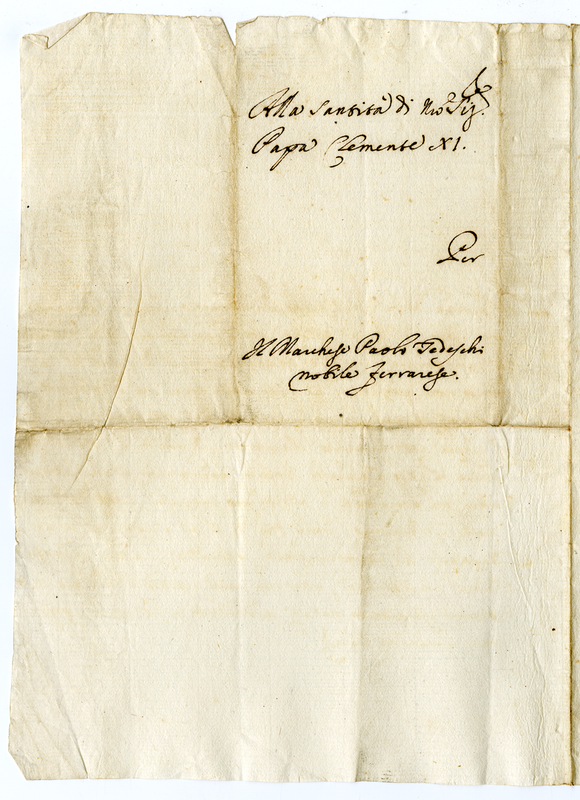 Alla Santità di Nro Sig.re
Papa Clemente XI.
Per
Il Marchese Paolo Tedeschi
nobile ferrarese.